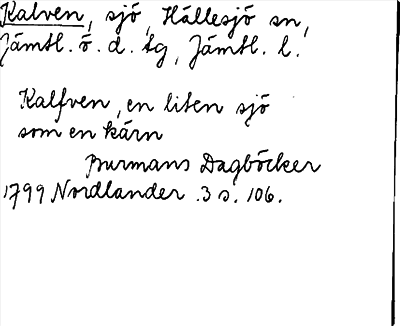 Kalven, sjö, Hällesjö sn,
Jämtl. ö. d. tg, Jämtl. l.
Kalfven, en liten sjö
som en kärn
Burmans Dagböcker
1799 Nordlander .3 s. 106.